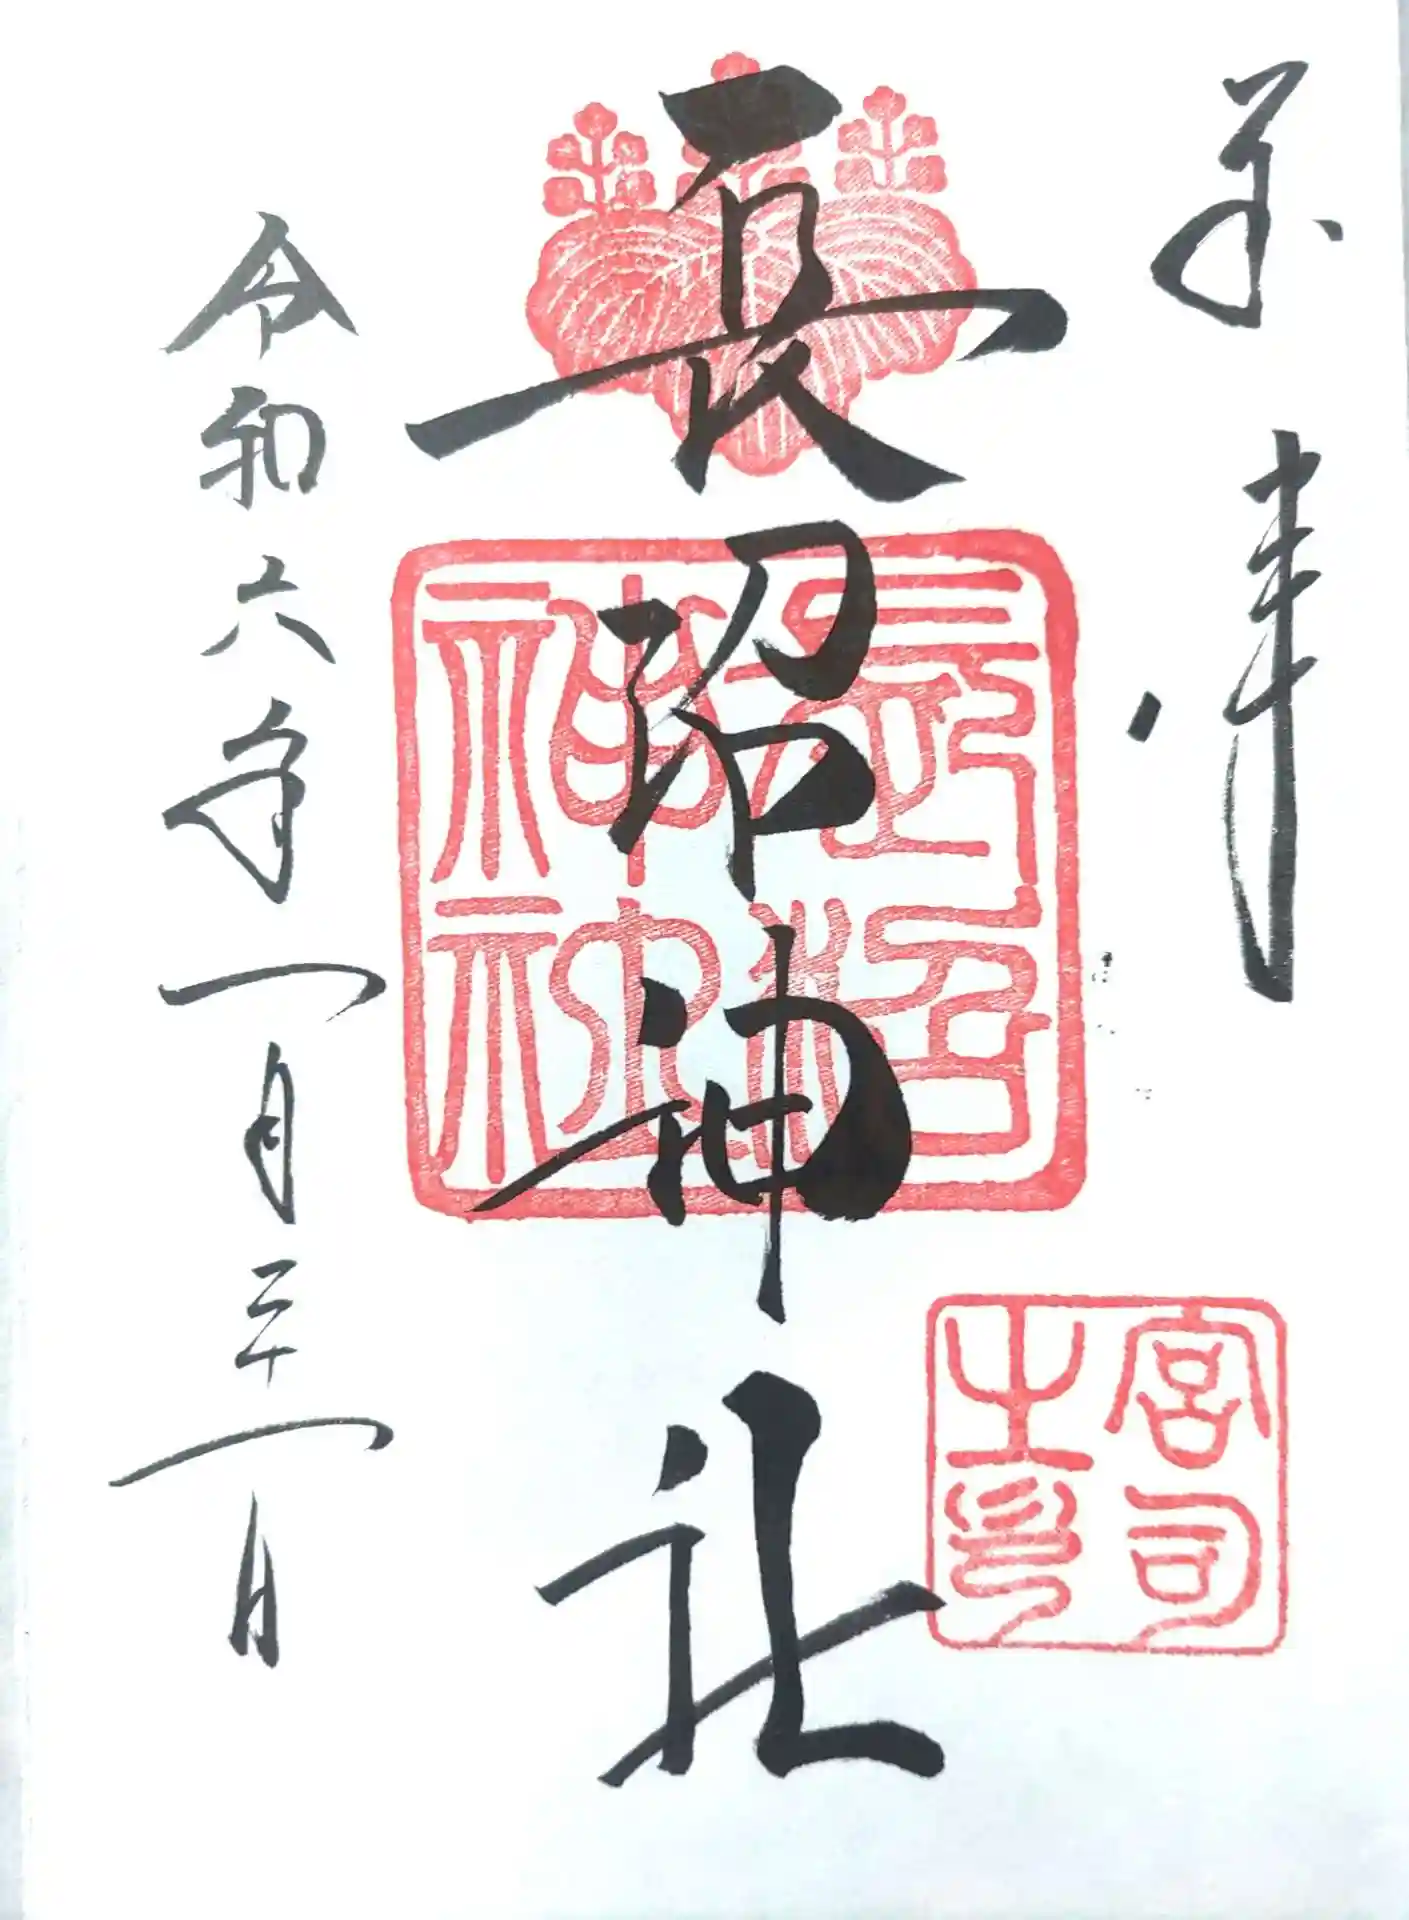 奉拝
長沼神社
令和六年一月二十一日
長沼神社
宮司之印